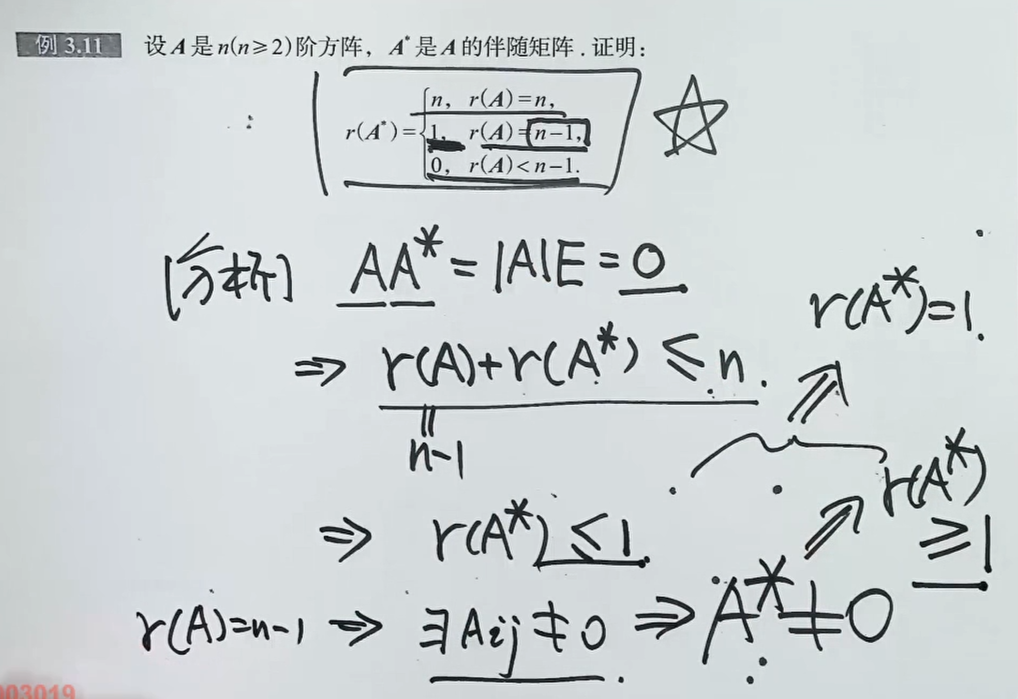 例 3.11 设 A 是 n(n≥2)阶方阵, A* 是 A 的伴随矩阵.证明:
n, r(A)=n,
r(A*)={1, r(A)=n-1,
0, r(A)<n-1.
[分析] AA* = |A|E = 0
r(A*)=1.
⇒ r(A)+r(A*) ≤ n.
n-1
r(A*)
⇒ r(A*) ≤ 1.
≥1
r(A)=n-1 ⇒ ∃Aij ≠ 0 ⇒ A* ≠ 0
003019